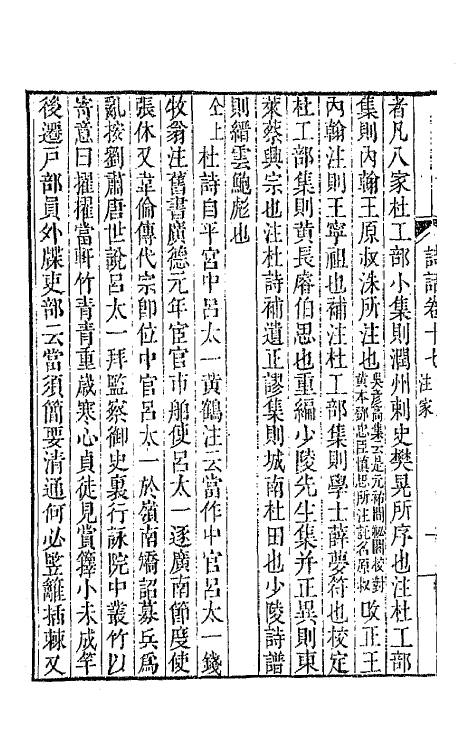 詩話卷十七 注家
者凡八家杜工部小集則潤州刺史樊晃所序也注杜工部
集則內翰王原叔洙所注也吳彥高集云是元祐間秘閣校對黃本鄧忠臣慎思所注託名原叔改正王
內翰注則王寧祖也補注杜工部集則學士薛夢符也校定
杜工部集則黃長睿伯思也重編少陵先生集并正異則東
萊蔡興宗也注杜詩補遺正謬集則城南杜田也少陵詩譜
則縉雲鮑彪也
仝上杜詩自平宮中呂太一黃鶴注云當作中官呂太一錢
牧翁注舊書廣德元年宦官市舶使呂太一逐廣南節度使
張休又韋倫傳代宗卽位中官呂太一於嶺南矯詔募兵爲
亂按劉肅唐世說呂太一拜監察御史裏行詠院中叢竹以
寄意曰擢擢當軒竹青青重歲寒心貞徒見賞籜小未成竿
後遷戶部員外牒吏部云當須簡要清通何必豎籬插棘又